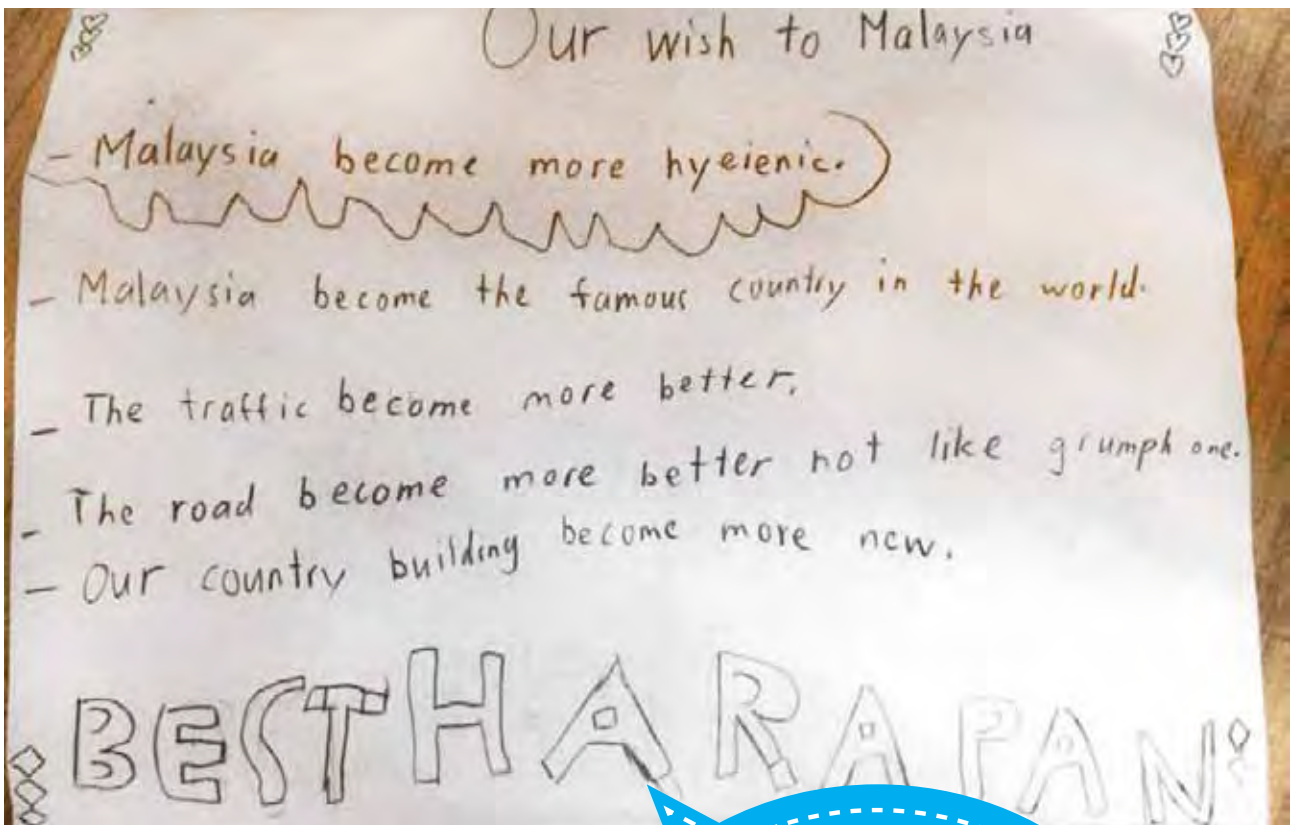 Our wish to Malaysia
- Malaysia become more hyeienic.
- Malaysia become the famous country in the world.
- The traffic become more better.
- The road become more better not like grumph one.
- Our country building become more new.
BEST HARAPAN